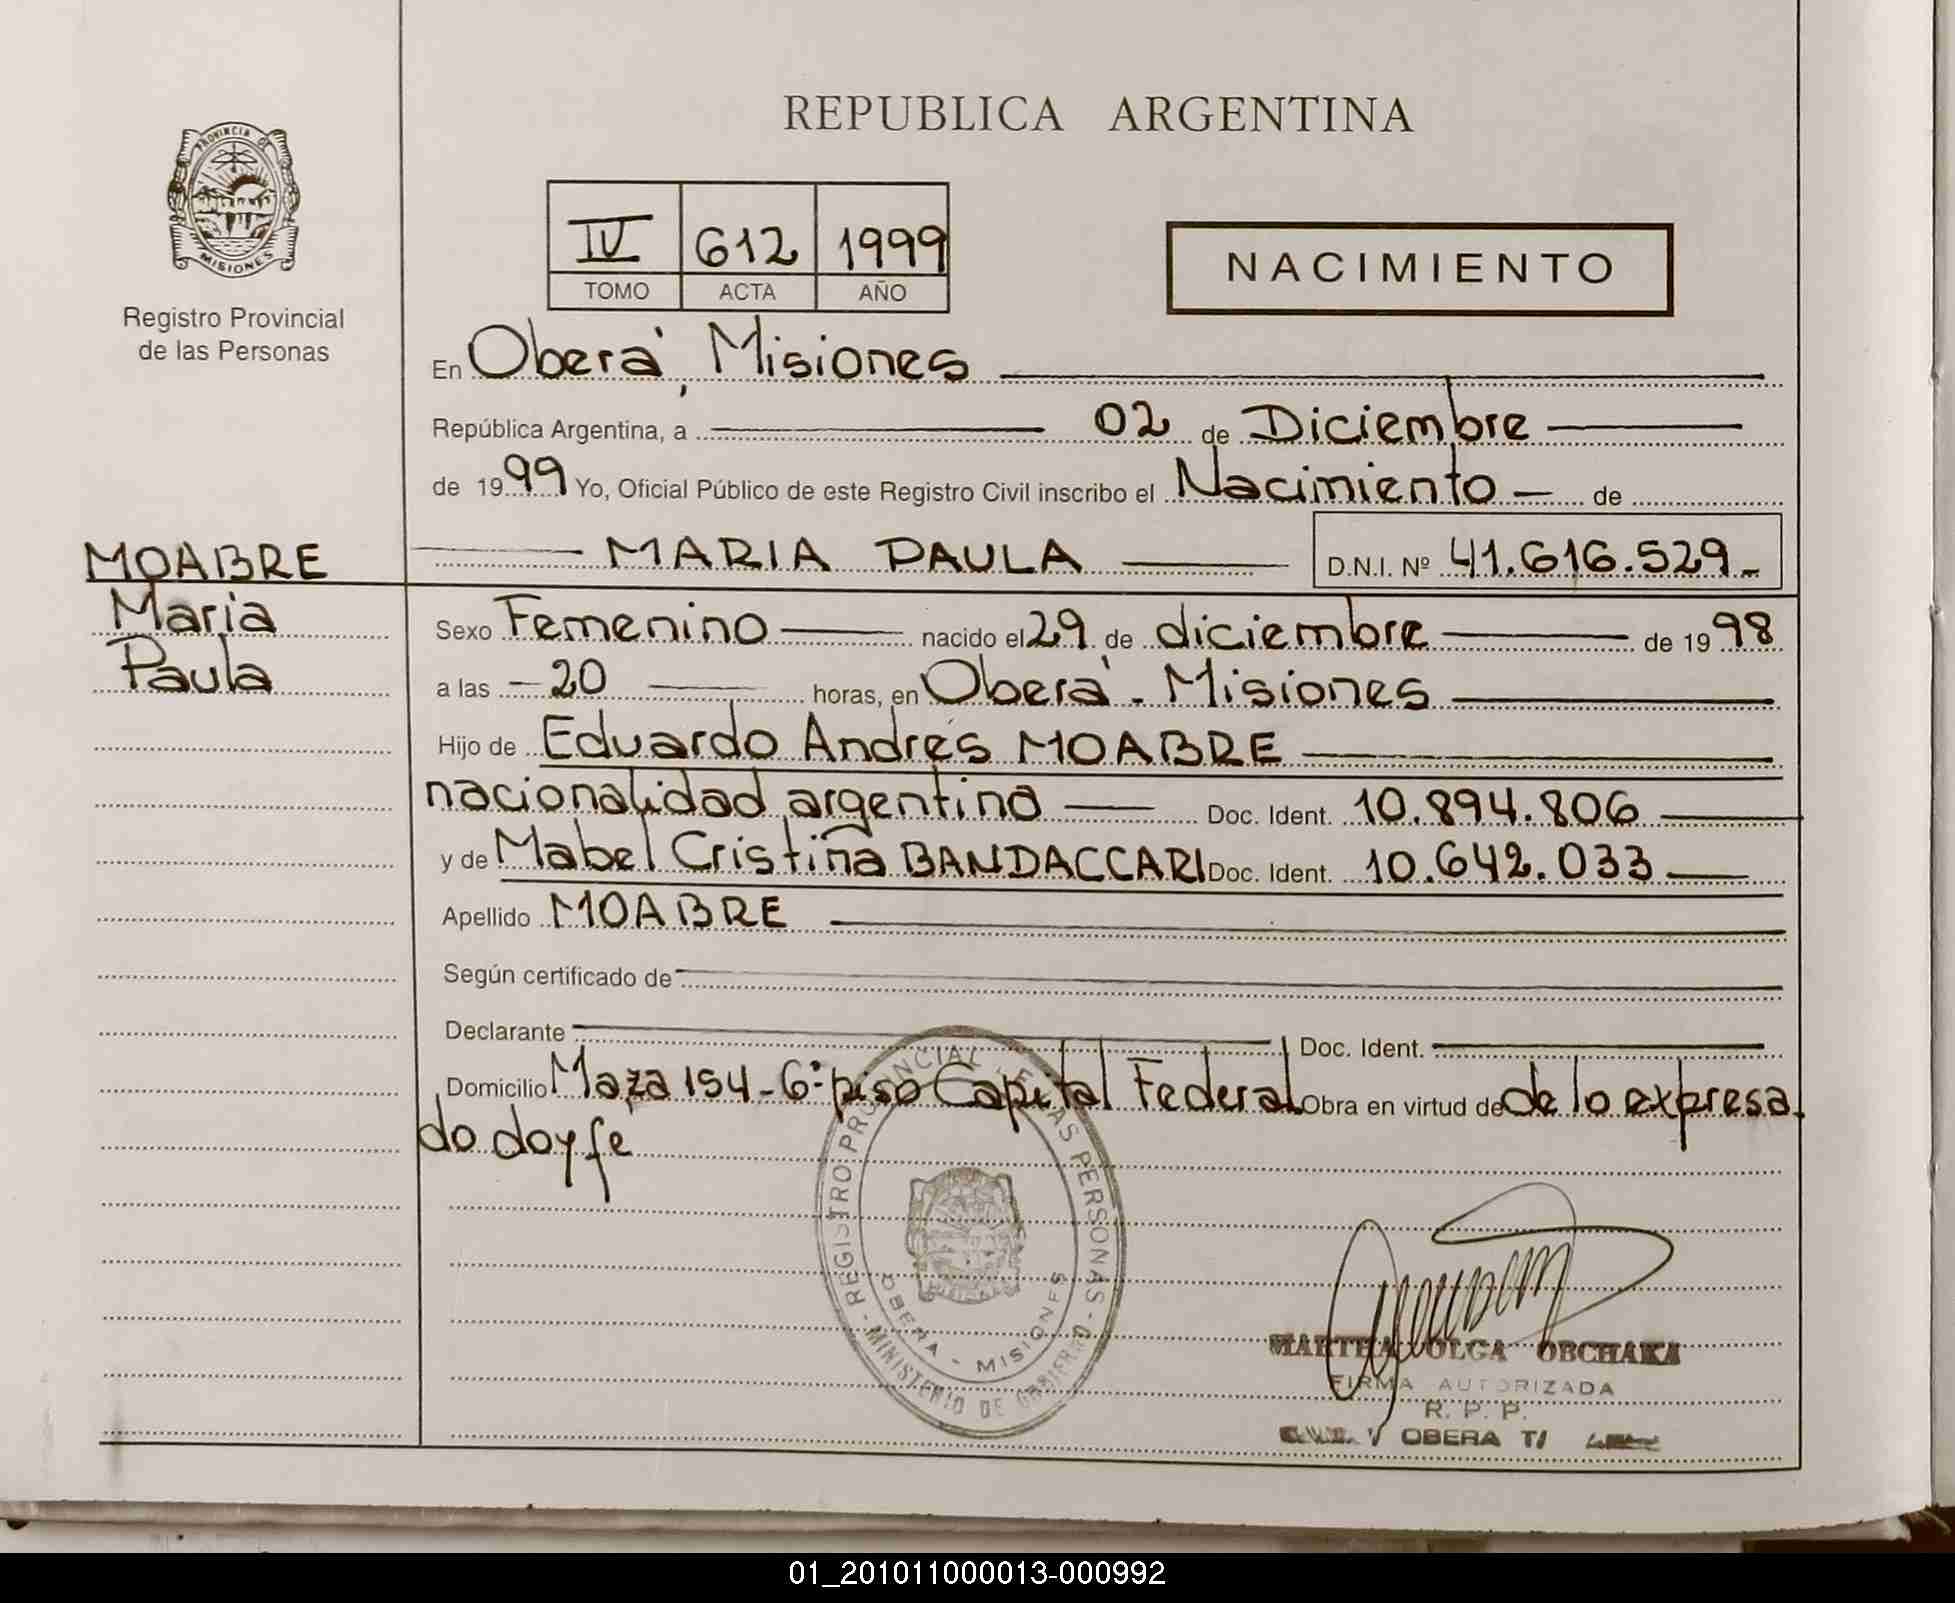 REPUBLICA ARGENTINA
PROVINCIA DE
MISIONES
Registro Provincial
de las Personas
IV 612 1999
TOMO ACTA AÑO
NACIMIENTO
En Oberá, Misiones
República Argentina, a 02 de Diciembre
de 1999 Yo, Oficial Público de este Registro Civil inscribo el Nacimiento de
MARIA PAULA D.N.I. Nº 41.616.529
MOABRE
Maria
Paula
Sexo Femenino nacido el 29 de diciembre de 1998
a las 20 horas, en Oberá - Misiones
Hijo de Eduardo Andrés MOABRE
nacionalidad argentina Doc. Ident. 10.894.806
y de Mabel Cristina BANDACCARI Doc. Ident. 10.642.033
Apellido MOABRE
Según certificado de
Declarante Doc. Ident.
Domicilio Maza 154 - 6º piso Capital Federal Obra en virtud de de lo expresa
do doy fe
REGISTRO PROVINCIAL DE LAS PERSONAS
OBERA - MISIONES
MINISTERIO DE GOBIERNO
MARTHA OLGA OBCHAKA
FIRMA AUTORIZADA
R. P. P.
OBERA
01_201011000013-000992